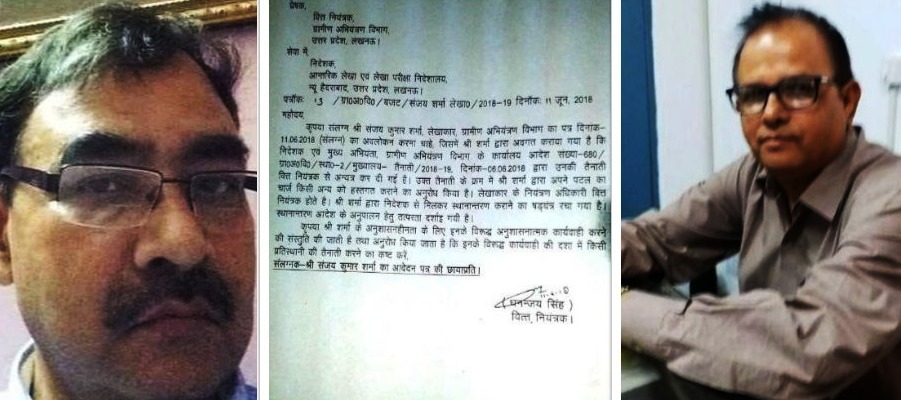 प्रेषक,
वित्त नियंत्रक,
ग्रामीण अभियंत्रण विभाग,
उत्तर प्रदेश, लखनऊ।
सेवा में,
निदेशक,
आन्तरिक लेखा एवं लेखा परीक्षा निदेशालय,
न्यू हैदराबाद, उत्तर प्रदेश, लखनऊ।
पत्रांकः 13 /ग्रा0अ0वि0/बजट/संजय शर्मा लेखा0/2018-19 दिनाँकः 11 जून, 2018
महोदय,
कृपया संलग्न श्री संजय कुमार शर्मा, लेखाकार, ग्रामीण अभियंत्रण विभाग का पत्र दिनाक-
11.06.2018 (संलग्न) का अवलोकन करना चाहे, जिसमे श्री शर्मा द्वारा अवगत कराया गया है कि
निदेशक एवं मुख्य अभियंता, ग्रामीण अभियंत्रण विभाग के कार्यालय आदेश संख्या-680/
ग्रा0अ0वि0/स्था0-2/मुख्यालय- तैनाती/2018-19, दिनांक-08.06.2018 द्वारा उनकी तैनाती
वित्त नियंत्रक से अन्यत्र कर दी गई है। उक्त तैनाती के क्रम मे श्री शर्मा द्वारा अपने पटल का
चार्ज किसी अन्य को हस्तगत कराने का अनुरोध किया है। लेखाकार के नियंत्रण अधिकारी वित्त
नियंत्रक होते है। श्री शर्मा द्वारा निदेशक से मिलकर स्थानान्तरण कराने का षड्यंत्र रचा गया है।
स्थानान्तरण आदेश के अनुपालन हेतु तत्परता दर्शाइ गयी है।
कृपया श्री शर्मा के अनुशासनहीनता के लिए इनके विरूद्ध अनुशासनात्मक कार्यवाही करने
की संस्तुति की जाती है तथा अनुरोध किया जाता है कि इनके विरूद्ध कार्यवाही की दशा में किसी
प्रतिस्थानी की तैनाती करने का कष्ट करें,
संलग्नक-श्री संजय कुमार शर्मा का आवेदन पत्र की छायाप्रति।
(धनन्जय सिंह )
वित्त, नियंत्रक।